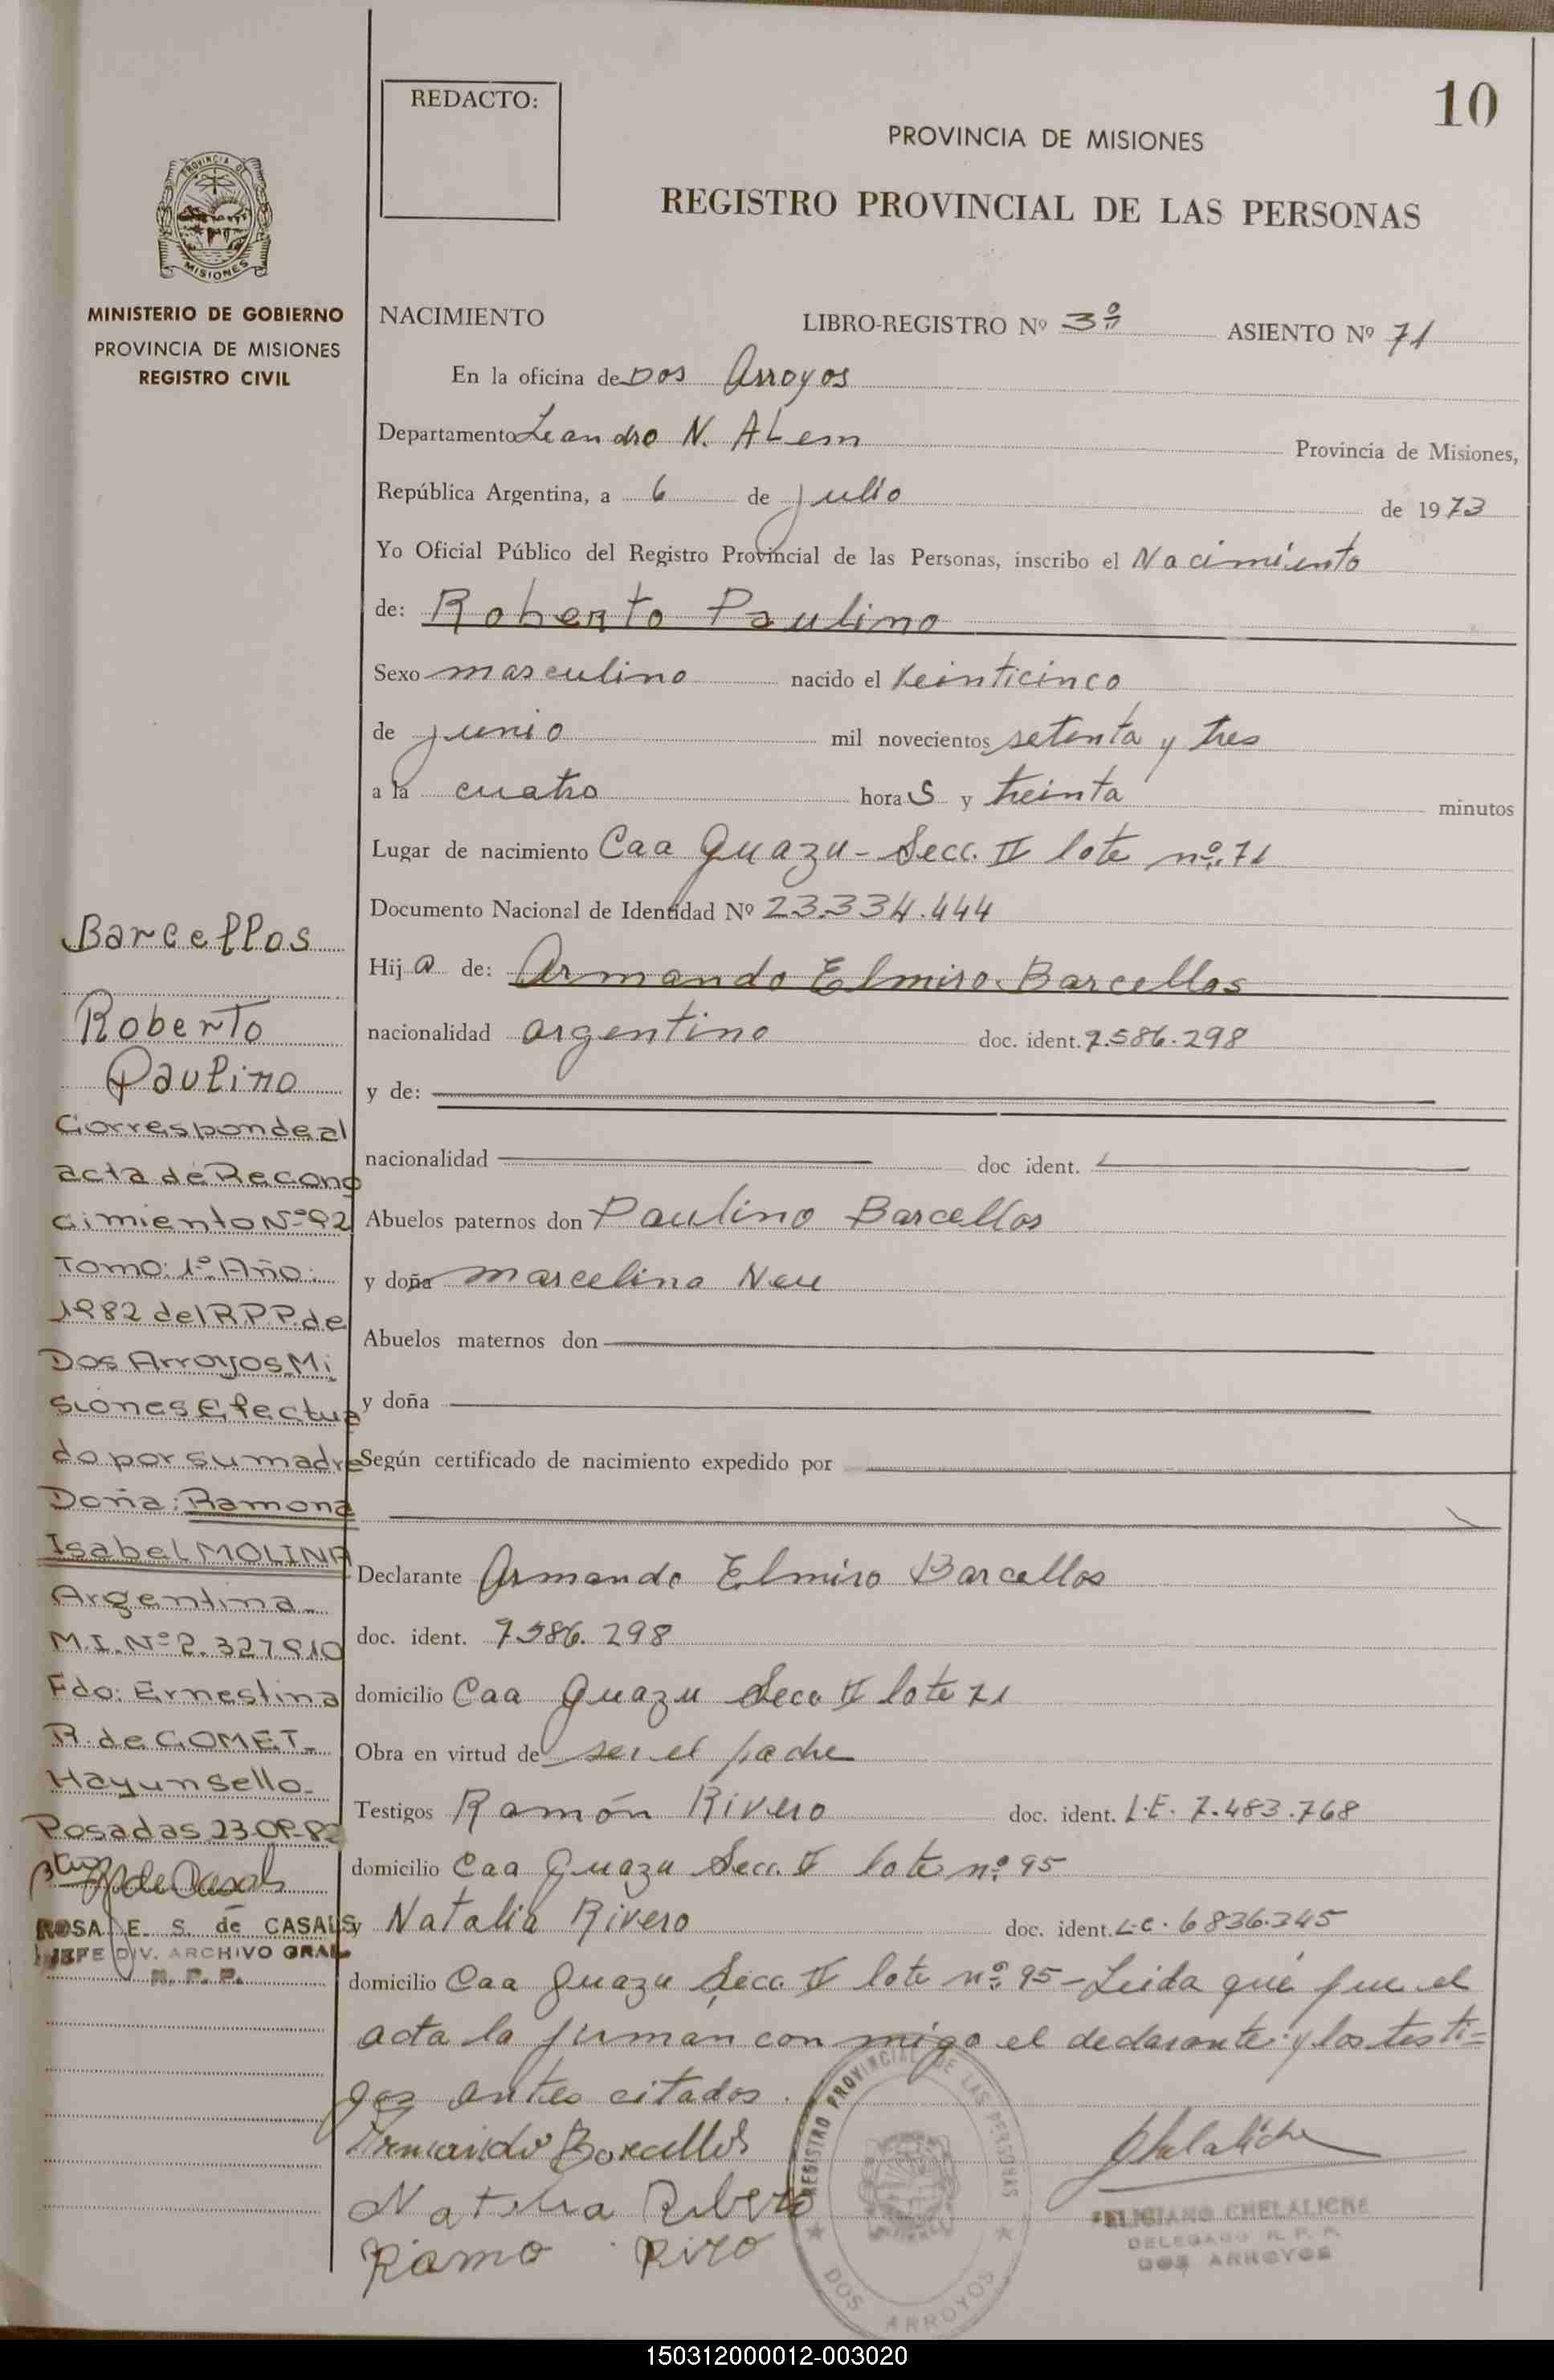 REDACTO:
10
PROVINCIA DE MISIONES
REGISTRO PROVINCIAL DE LAS PERSONAS
PROVINCIA DE
MISIONES
MINISTERIO DE GOBIERNO
PROVINCIA DE MISIONES
REGISTRO CIVIL
NACIMIENTO LIBRO-REGISTRO Nº 3º ASIENTO Nº 71
En la oficina de Dos Arroyos
Departamento Leandro N. ALem Provincia de Misiones,
República Argentina, a 6 de julio de 1973
Yo Oficial Público del Registro Provincial de las Personas, inscribo el Nacimiento
de: Roberto Paulino
Sexo masculino nacido el veinticinco
de junio mil novecientos setenta y tres
a la cuatro hora s y treinta minutos
Lugar de nacimiento Caa Guazu - Secc. II lote nº 71
Documento Nacional de Identidad Nº 23.334.444
Hij o de: Armando Elmiro Barcellos
nacionalidad argentino doc. ident. 7.586.298
y de:
nacionalidad doc ident.
Abuelos paternos don Paulino Barcellos
y doña Marcelina Neu
Abuelos maternos don
y doña
Según certificado de nacimiento expedido por
Declarante Armando Elmiro Barcellos
doc. ident. 7586.298
domicilio Caa Guazu Secc II lote 71
Obra en virtud de ser el padre
Testigos Ramón Rivero doc. ident. L.E. 7.483.768
domicilio Caa Guazu Secc. II lote nº 95
y Natalia Rivero doc. ident. L.C. 6836.345
domicilio Caa Guazu Secc. II lote nº 95 - Leida que fue el
acta la firman con migo el declarante y los testi=
gos antes citados.
Armando Barcellos
Natalia Ribero
Ramo Riro
Barcellos
Roberto
Paulino
Corresponde al
acta de Recono
cimiento Nº 92
Tomo: 1º Año:
1982 del R.P.P. de
Dos Arroyos Mi
siones Efectua
do por su madre
Doña: Ramona
Isabel MOLINA
Argentina
M.I. Nº 2.327.910
Fdo: Ernestina
R. de GOMET.
Hay un sello.
Posadas 23-09-82
ROSA E. S. de CASALS
JEFE DIV. ARCHIVO GRAL
R. P. P.
REGISTRO PROVINCIAL DE LAS PERSONAS
DOS ARROYOS
FELICIANO CHELALICHE
DELEGADO R. P. P.
DOS ARROYOS
150312000012-003020